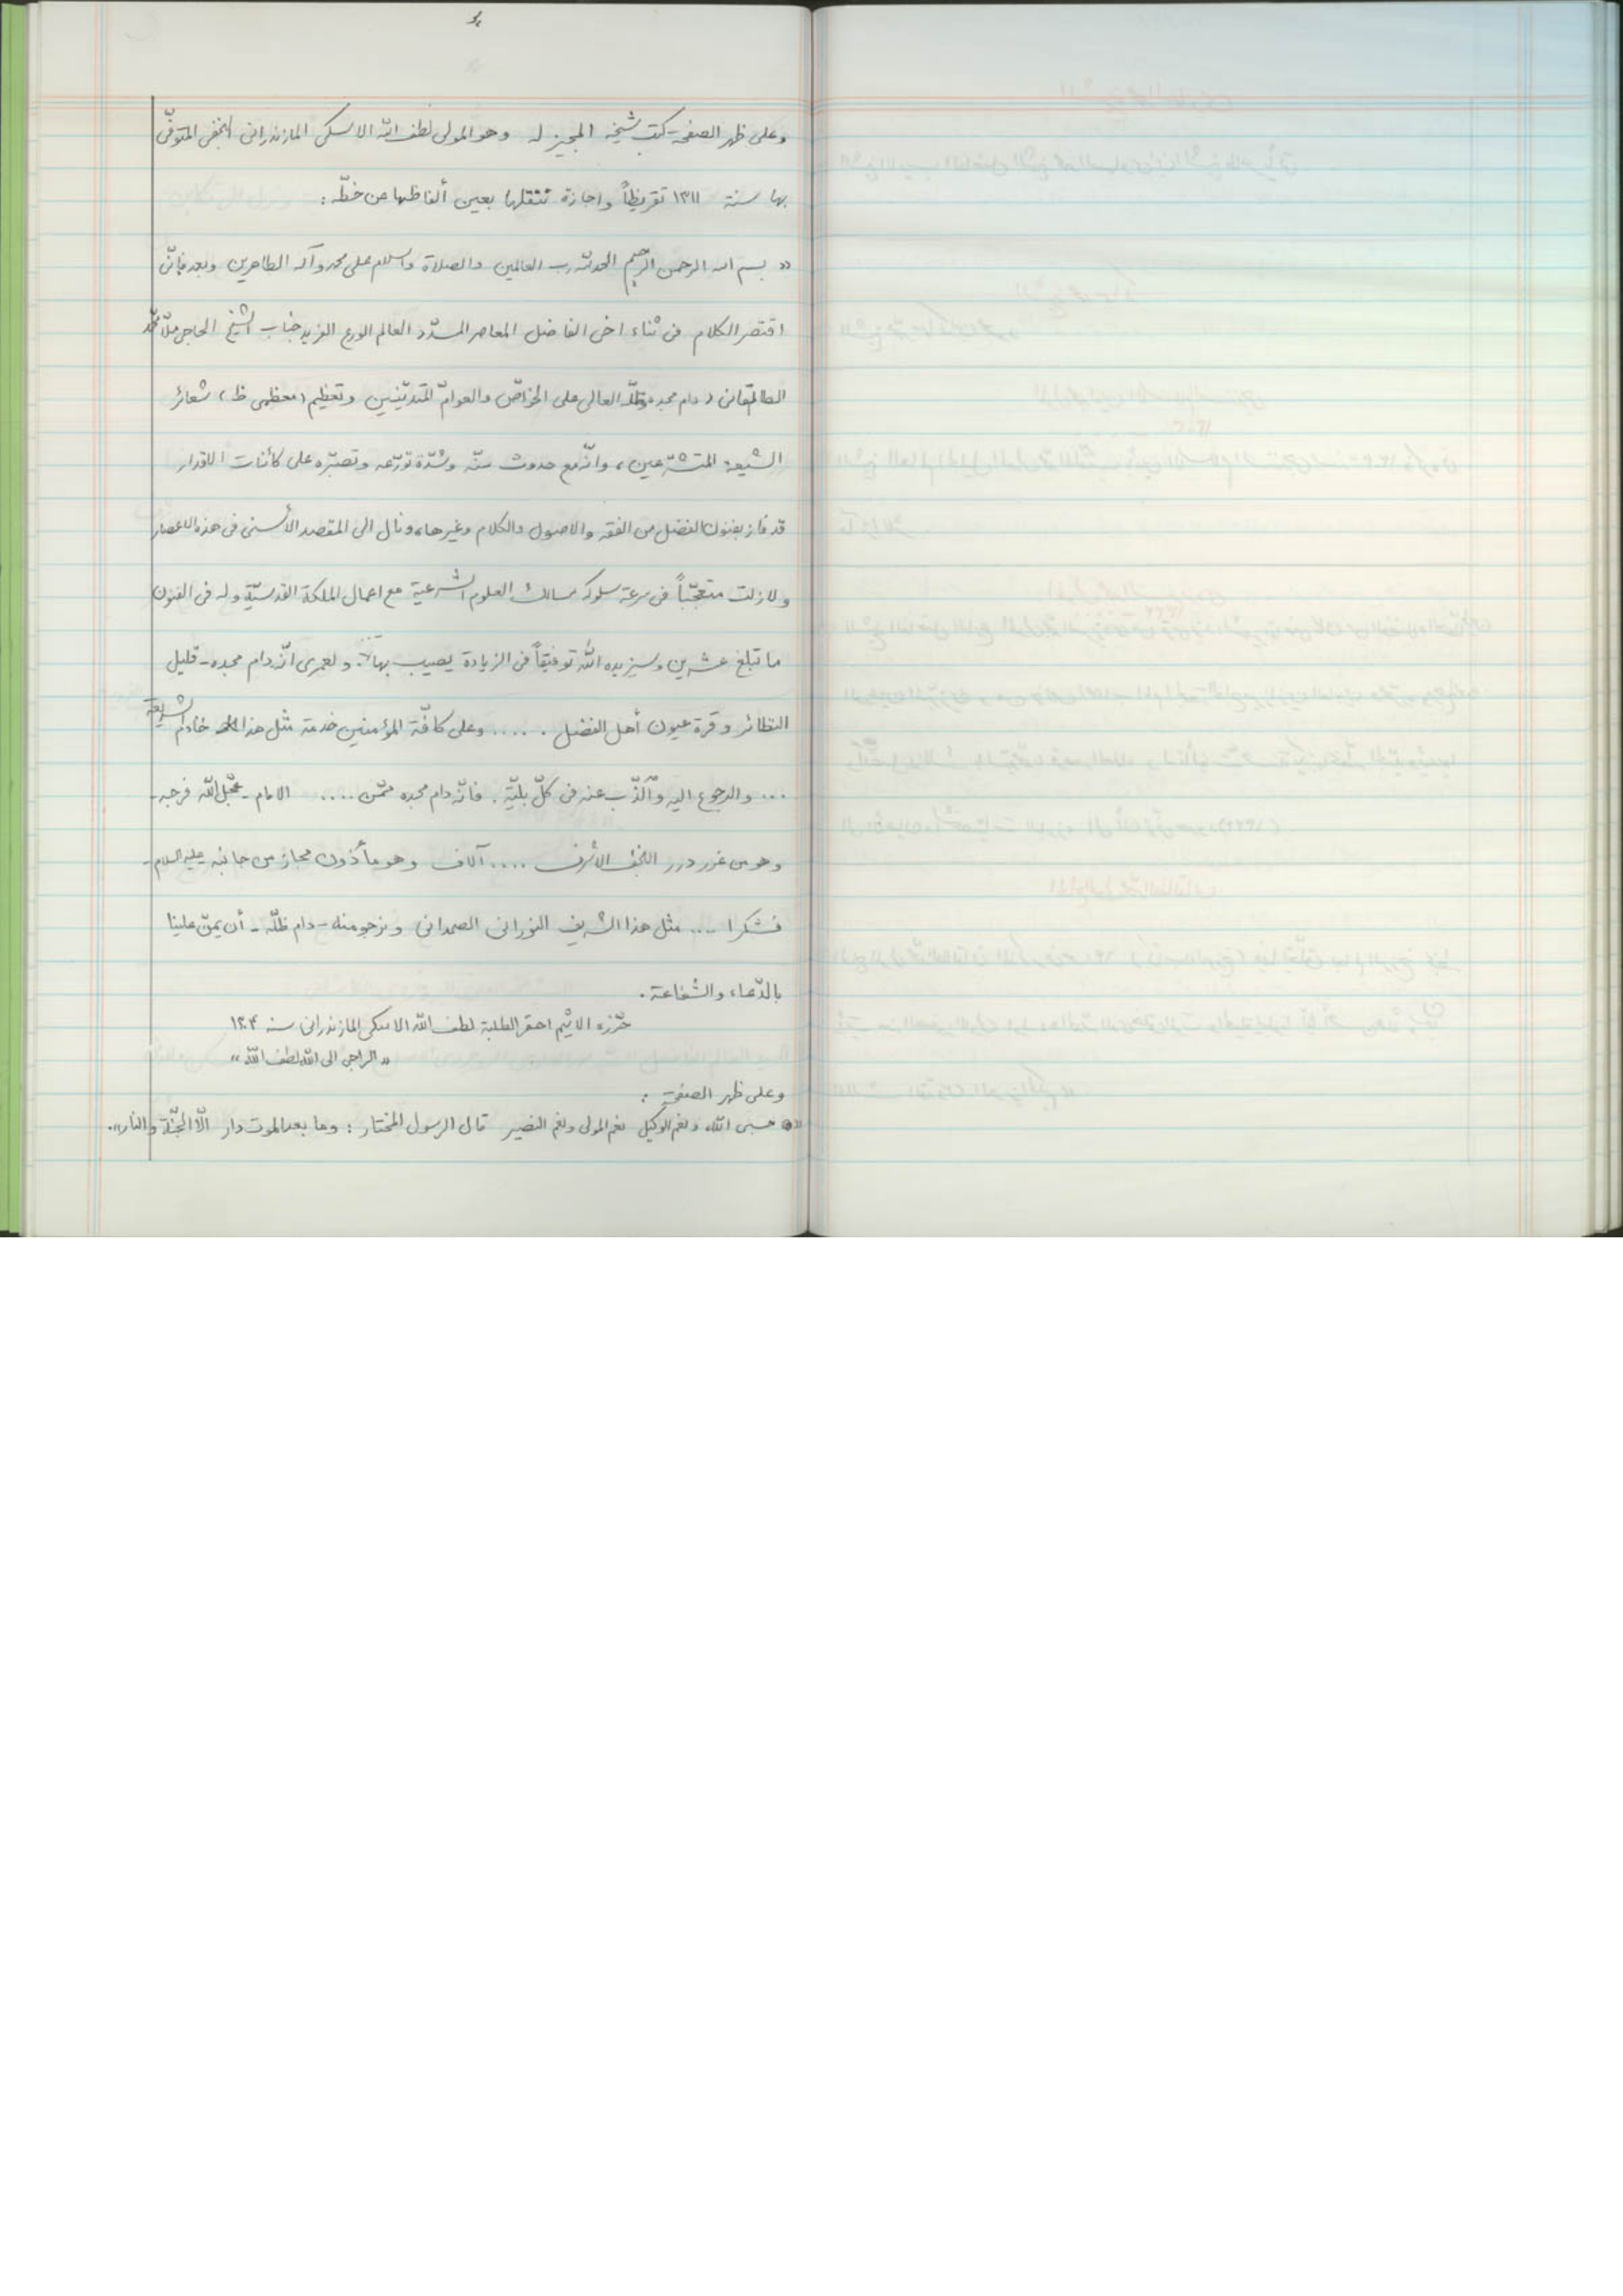 وعلى ظهر الصفحة كتب شيخه المجيز له وهو المولى لطف الله الاسكى المازندرانى النجفى المتوفّى
بها سنة ١٣١١ تقريظاً واجازة ننقلها بعين ألفاظها عن خطّه :
« بسم الله الرحمن الرحيم الحمد لله رب العالمين والصلاة والسلام على محمد وآله الطاهرين وبعد فإنّى
اقتصر الكلام فى ثناء اخى الفاضل المعاصر المسدّد العالم الورع الفريد جناب الشيخ الحاجى ملّا محمّد
الطالقانى ( دام مجده وظلّه العالى على الخواصّ والعوامّ المتديّنين وتعظيم ( معظمى ظ ) شعائر
الشيعة المتشرّعين ، وانّه مع حدوث سنّه وشدّة تورّعه وتصبّره على كائنات الاقدار
قد فاز بفنون الفضل من الفقه والاصول والكلام وغيرها ، ونال الى المقصد الأسنى فى هذه الاعصار
ولازلت متعجّباً فى سرعة سلوكه مسالك العلوم الشرعية مع اعمال الملكة القدسيّة وله فى الفنون
ما تبلغ عشرين وسيزيده الله توفيقاً فى الزيادة يصيب بها . ولعمرى انّه دام مجده - قليل
النظائر وقرة عيون أهل الفضل ..... وعلى كافّة المؤمنين خدمة مثل هذا خادم الشريعة
... والرجوع اليه والذّب عنه فى كلّ بليّة . فانّه دام مجده ممّن .... الامام - عجّل الله فرجه -
وهو من غرر درر النجف الأشرف .... آلاف وهو مأذون مجاز من جانبه عليه السلام -
فشكرا .... مثل هذا الشريف النورانى الصمدانى ونرجو منه - دام ظلّه - أن يمنّ علينا
بالدّعاء والشفاعة .
حرّره الاثيم احقر الطلبة لطف الله الاسكى المازندرانى سنه ١٣٠٤
« الراجى الى الله لطف الله »
وعلى ظهر الصفحة :
« حسبى الله ونعم الوكيل نعم المولى ونعم النصير قال الرسول المختار : وما بعد الموت دار الّا الجنّة والنار » .